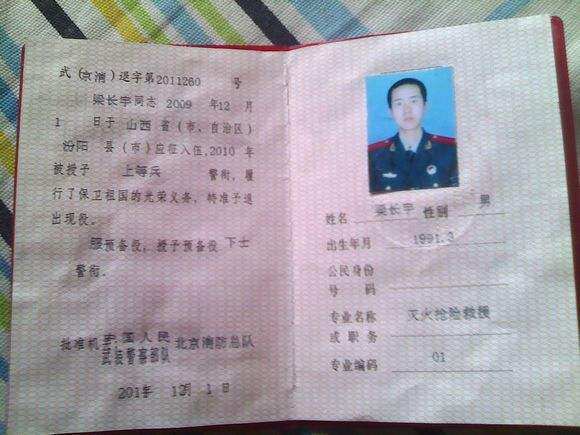 武(京消)退字第2011260 号
梁长宇同志 2009 年12 月
1 日于 山西 省(市、自治区)
汾阳 县(市)应征入伍,2010 年
被授予 上等兵 警衔,履
行了保卫祖国的光荣义务,特准予退
出现役。
服预备役,授予预备役 下士
警衔。
批准机 国人民
武装警察部队 北京消防总队
201 年 12月 1 日
姓名 梁长宇 性别 男
出生年月 1991.3
公民身份
号 码
专业名称 灭火抢险救援
或职务
专业编码 01